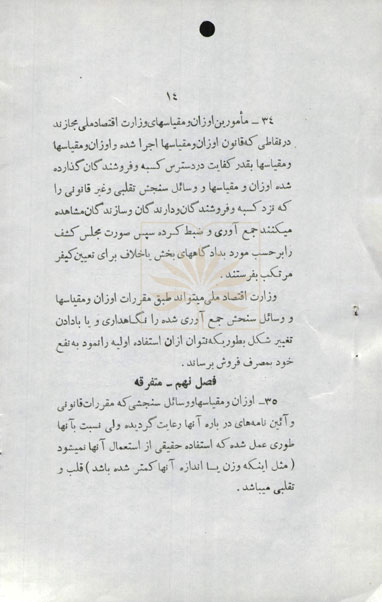 ۱٤
۳٤ ـ مأمورین اوزان و مقیاسهای وزارت اقتصاد ملی مجازند
در نقاطی که قانون اوزان و مقیاسها اجرا شده و اوزان و مقیاسها
و مقیاسها بقدر کفایت در دسترس کسبه و فروشندگان گذارده
شده اوزان و مقیاسها و وسائل سنجش تقلبی وغیر قانونی را
که نزد کسبه و فروشندگان و دارندگان وسازندگان مشاهده
میکنند جمع آوری و ضبط کرده سپس صورت مجلس کشف
را بر حسب مورد بدادگاههای بخش یا خلاف برای تعیین کیفر
مرتکب بفرستند .
وزارت اقتصاد ملی میتواند طبق مقررات اوزان و مقیاسها
و وسائل سنجش جمع آوری شده را نگاهداری و یا بادادن
تغییر شکل بطوریکه نتوان ازان استفاده اولیه را نمود به نفع
خود بمصرف فروش برساند .
فصل نهم ـ متفرقه
۳٥ـ اوزان و مقیاسها و وسائل سنجشی که مقررات قانونی
و آئین نامه‌های در باره آنها رعایت گردیده ولی نسبت بآنها
طوری عمل شده که استفاده حقیقی از استعمال آنها نمیشود
( مثل اینکه وزن یا اندازه آنها کمتر شده باشد ) قلب و
تقلبی میباشد .